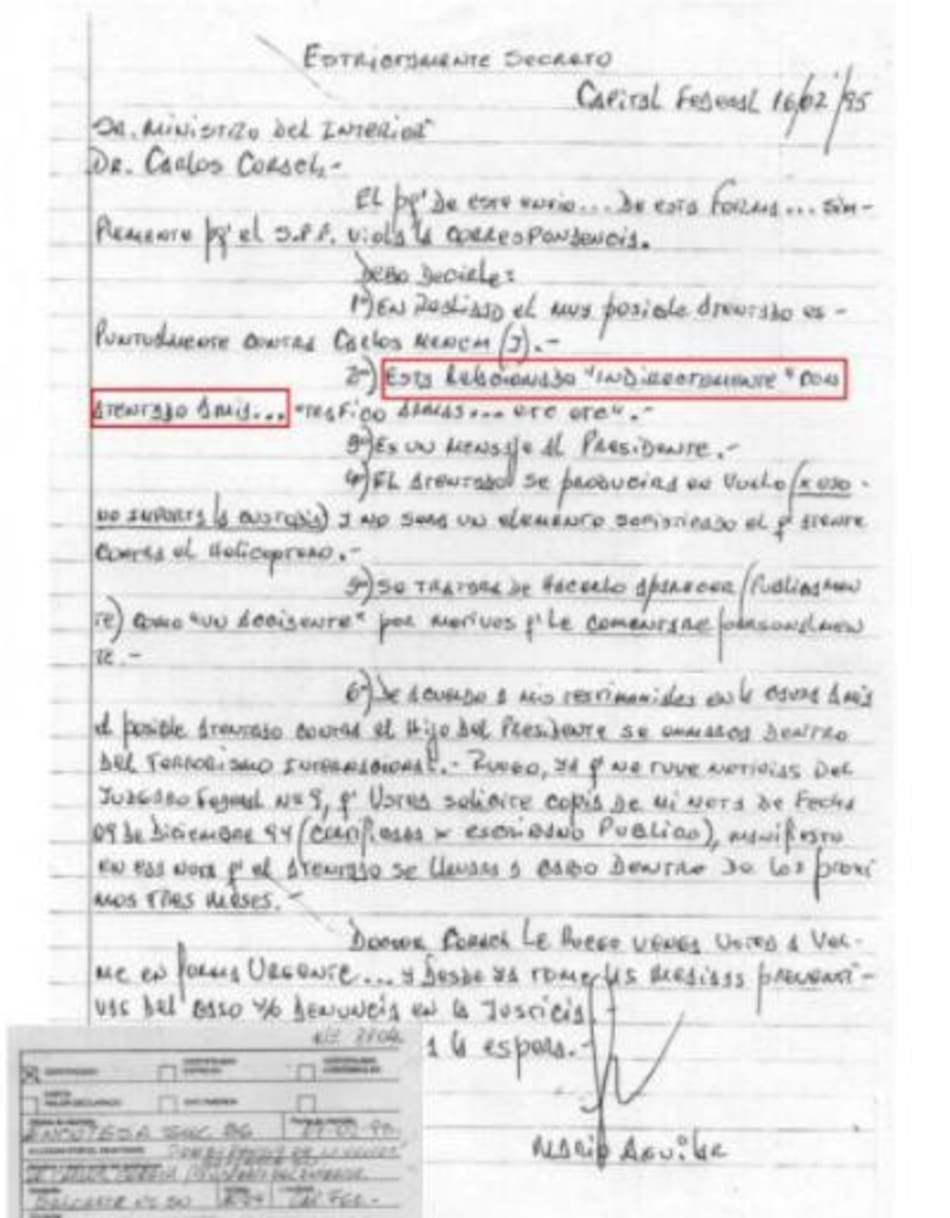 ESTRICTAMENTE SECRETO
CAPITAL FEDERAL 16/02/95
SR. MINISTRO DEL INTERIOR
DR. CARLOS CORACH.-
EL pq' DE ESTE ENVIO... DE ESTA FORMA... SIM-
PLEMENTE pq' el S.P.F. VIOLA LA CORRESPONDENCIA.
DEBO DECIRLE:
1º) EN REALIDAD el MUY posible ATENTADO ES -
PUNTUALMENTE CONTRA CARLOS MENEM (J).-
2º) ESTA RELACIONADO "INDIRECTAMENTE" CON
ATENTADO AMIA... "TRAFICO ARMAS... ETC ETC".-
3º) ES UN MENSAJE AL PRESIDENTE.-
4º) EL ATENTADO SE PRODUCIRA EN VUELO (x ESO -
NO IMPORTA LA CUSTODIA) Y NO SERA UN ELEMENTO SOFISTICADO el q' ATENTE
CONTRA el HELICOPTERO.-
5º) SE TRATARA DE HACERLO APARECER (PUBLICAMEN
TE) COMO "UN ACCIDENTE" por MOTIVOS q' LE COMENTARE PERSONALMEN
TE.-
6º) DE ACUERDO A MIS TESTIMONIALES EN LA CAUSA AMIA
el posible ATENTADO CONTRA el HIJO DEL PRESIDENTE SE ENMARCA DENTRO
DEL TERRORISMO INTERNACIONAL.- RUEGO, YA q' NO TUVE NOTICIAS DEL
JUZGADO FEDERAL Nº 9, q' USTED SOLICITE COPIA DE MI NOTA DE FECHA
09 DE DICIEMBRE 94 (CERTIFICADA x ESCRIBANO PUBLICO), MANIFIESTO
EN ESA NOTA q' el ATENTADO SE LLEVARA A CABO DENTRO DE LOS PROXI
MOS TRES MESES.-
DOCTOR CORACH LE RUEGO VENGA USTED A VER-
ME EN FORMA URGENTE... Y DESDE YA TOME LAS MEDIDAS PREVENTI-
VAS DEL CASO Y/O DENUNCIA EN LA JUSTICIA
A LA ESPERA.-
MARIO AGUILAR
ENCOTESA SUC 36
BALCARCE Nº 50
CAP. FED.-